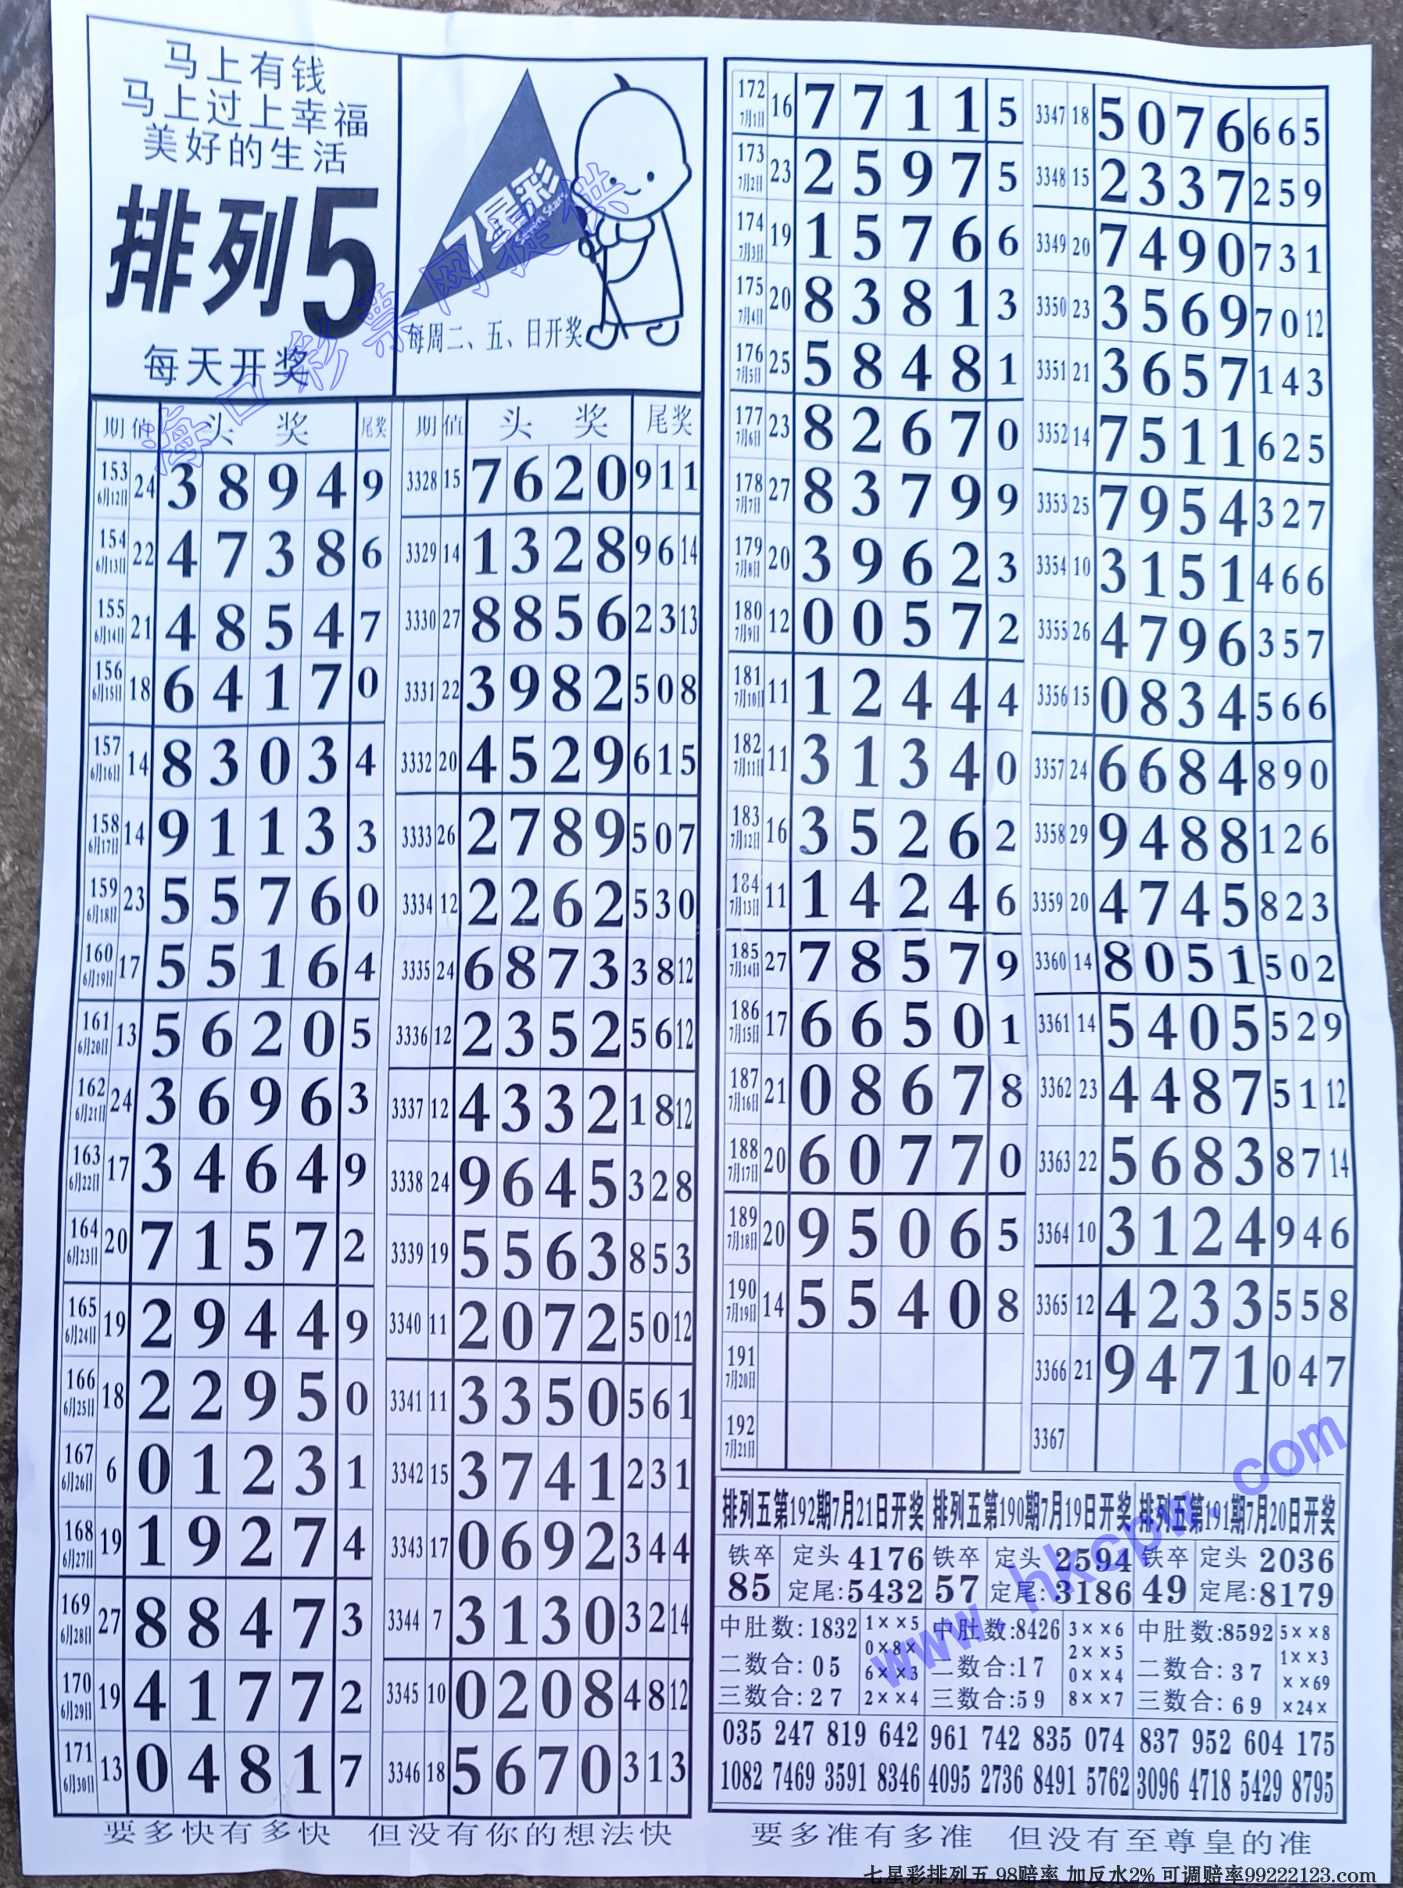 马上有钱
马上过上幸福
美好的生活
排列5
每天开奖
7星彩
Seven Star
每周二、五、日开奖
期 值 头 奖 尾奖
153 6月12日 24 3 8 9 4 9
154 6月13日 22 4 7 3 8 6
155 6月14日 21 4 8 5 4 7
156 6月15日 18 6 4 1 7 0
157 6月16日 14 8 3 0 3 4
158 6月17日 14 9 1 1 3 3
159 6月18日 23 5 5 7 6 0
160 6月19日 17 5 5 1 6 4
161 6月20日 13 5 6 2 0 5
162 6月21日 24 3 6 9 6 3
163 6月22日 17 3 4 6 4 9
164 6月23日 20 7 1 5 7 2
165 6月24日 19 2 9 4 4 9
166 6月25日 18 2 2 9 5 0
167 6月26日 6 0 1 2 3 1
168 6月27日 19 1 9 2 7 4
169 6月28日 27 8 8 4 7 3
170 6月29日 19 4 1 7 7 2
171 6月30日 13 0 4 8 1 7
期 值 头 奖 尾奖
3328 15 7 6 2 0 9 1 1
3329 14 1 3 2 8 9 6 14
3330 27 8 8 5 6 2 3 13
3331 22 3 9 8 2 5 0 8
3332 20 4 5 2 9 6 1 5
3333 26 2 7 8 9 5 0 7
3334 12 2 2 6 2 5 3 0
3335 24 6 8 7 3 3 8 12
3336 12 2 3 5 2 5 6 12
3337 12 4 3 3 2 1 8 12
3338 24 9 6 4 5 3 2 8
3339 19 5 5 6 3 8 5 3
3340 11 2 0 7 2 5 0 12
3341 11 3 3 5 0 5 6 1
3342 15 3 7 4 1 2 3 1
3343 17 0 6 9 2 3 4 4
3344 7 3 1 3 0 3 2 14
3345 10 0 2 0 8 4 8 12
3346 18 5 6 7 0 3 1 3
172 7月1日 16 7 7 1 1 5
173 7月2日 23 2 5 9 7 5
174 7月3日 19 1 5 7 6 6
175 7月4日 20 8 3 8 1 3
176 7月5日 25 5 8 4 8 1
177 7月6日 23 8 2 6 7 0
178 7月7日 27 8 3 7 9 9
179 7月8日 20 3 9 6 2 3
180 7月9日 12 0 0 5 7 2
181 7月10日 11 1 2 4 4 4
182 7月11日 11 3 1 3 4 0
183 7月12日 16 3 5 2 6 2
184 7月13日 11 1 4 2 4 6
185 7月14日 27 7 8 5 7 9
186 7月15日 17 6 6 5 0 1
187 7月16日 21 0 8 6 7 8
188 7月17日 20 6 0 7 7 0
189 7月18日 20 9 5 0 6 5
190 7月19日 14 5 5 4 0 8
191 7月20日
192 7月21日
3347 18 5 0 7 6 6 6 5
3348 15 2 3 3 7 2 5 9
3349 20 7 4 9 0 7 3 1
3350 23 3 5 6 9 7 0 12
3351 21 3 6 5 7 1 4 3
3352 14 7 5 1 1 6 2 5
3353 25 7 9 5 4 3 2 7
3354 10 3 1 5 1 4 6 6
3355 26 4 7 9 6 3 5 7
3356 15 0 8 3 4 5 6 6
3357 24 6 6 8 4 8 9 0
3358 29 9 4 8 8 1 2 6
3359 20 4 7 4 5 8 2 3
3360 14 8 0 5 1 5 0 2
3361 14 5 4 0 5 5 2 9
3362 23 4 4 8 7 5 1 12
3363 22 5 6 8 3 8 7 14
3364 10 3 1 2 4 9 4 6
3365 12 4 2 3 3 5 5 8
3366 21 9 4 7 1 0 4 7
3367
排列五第192期7月21日开奖
铁卒 85 定头 4176
定尾:5432
中肚数:1832
二数合:05
三数合:27
1××5
0×8×
6××3
2××4
035 247 819 642
1082 7469 3591 8346
排列五第190期7月19日开奖
铁卒 57 定头 2594
定尾:3186
中肚数:8426
二数合:17
三数合:59
3××6
2××5
0××4
8××7
961 742 835 074
4095 2736 8491 5762
排列五第191期7月20日开奖
铁卒 49 定头 2036
定尾:8179
中肚数:8592
二数合:37
三数合:69
5××8
1××3
××69
×24×
837 952 604 175
3096 4718 5429 8795
要多快有多快 但没有你的想法快
要多准有多准 但没有至尊皇的准
海口彩票网提供
www.hkcpw.com
七星彩排列五 98赔率 加反水2% 可调赔率99222123.com